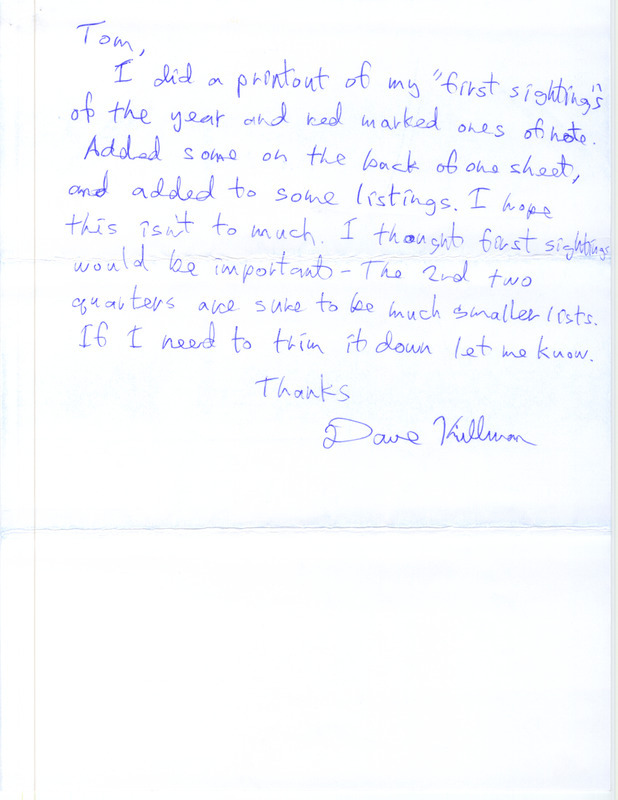 Tom,
I did a printout of my "first sightings"
of the year and red marked ones of note.
Added some on the back of one sheet,
and added to some listings. I hope
this isn't to much. I thought first sightings
would be important - The 2nd two
quarters are sure to be much smaller lists.
If I need to trim it down let me know.
Thanks
Dave Killman